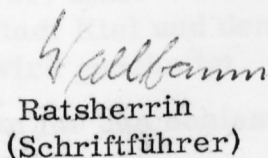 Wallbaum
Ratsherrin
(Schriftführer)